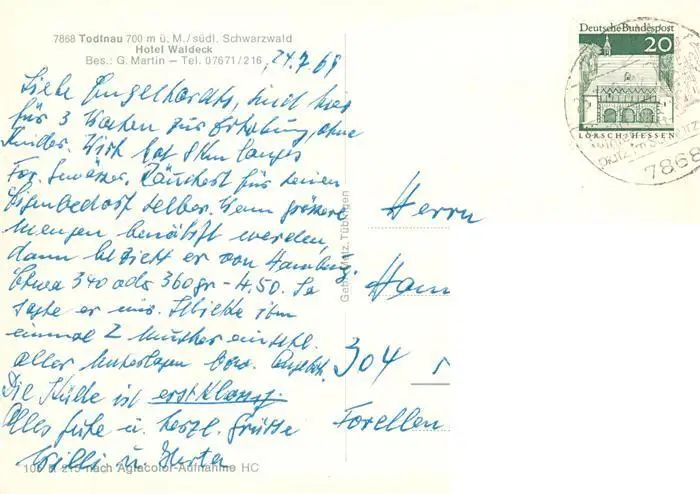 7868 Todtnau 700 m ü. M./südl. Schwarzwald
Hotel Waldeck
Bes.: G. Martin – Tel. 07671/216
24.7.69
Liebe Engelhardts, sind hier
für 3 Wochen zur Erholung, ohne
Kinder. Wirt hat 8km langes
For. Gewässer. Räuchert für seinen
Eigenbedarf selber. Wenn grössere
Mengen benötigt werden,
dann bezieht er von Hamburg.
Etwa 340 oder 360 gr - 4.50. So
sagte er mir. Schickt ihm
einmal 2 Muster einschl.
aller Unterlagen bzw. Angebot.
Die Küche ist erstklassig.
Alles Gute u. herzl. Grüsse
Willi u. Herta
nach Agfacolor-Aufnahme HC
Gebr. Metz, Tübingen
Deutsche Bundespost
20
LORSCH/HESSEN
7868
Herrn
304
Forellen